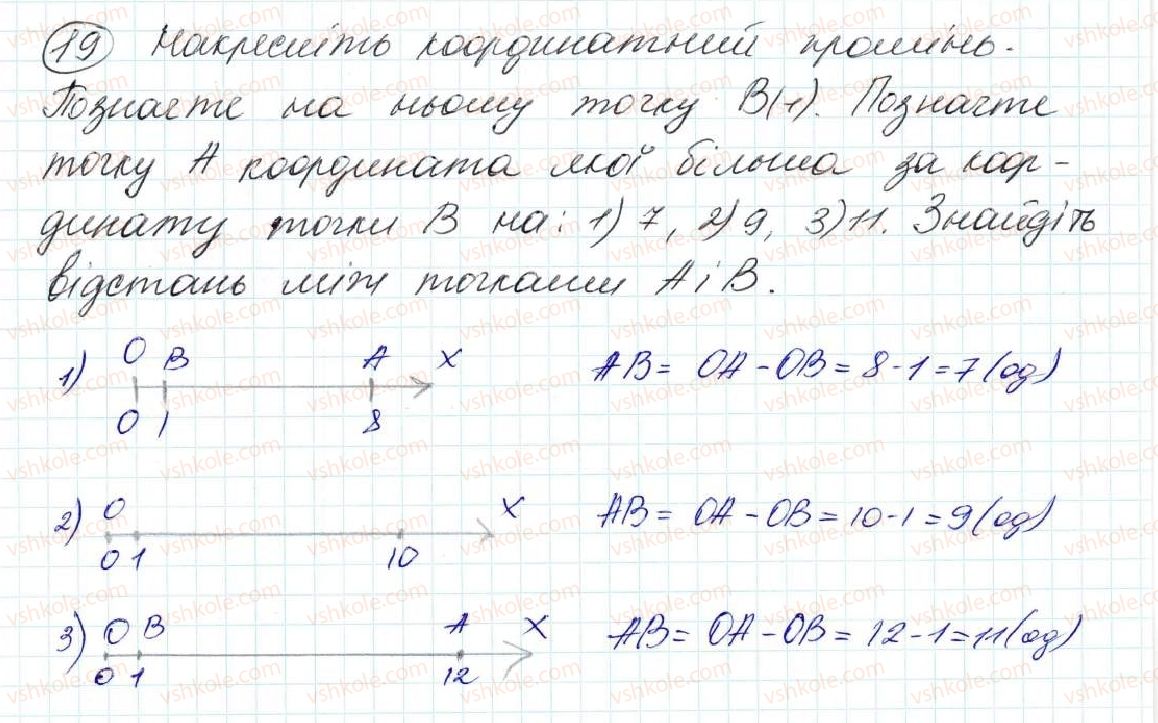 19 Накресліть координатний промінь.
Позначте на ньому точку В(1). Позначте
точку А координата якої більша за коор-
динату точки В на: 1) 7, 2) 9, 3) 11. Знайдіть
відстань між точками А і В.
1) О В А х АВ = ОА - ОВ = 8 - 1 = 7 (од)
0 1 8
2) О х АВ = ОА - ОВ = 10 - 1 = 9 (од)
0 1 10
3) О В А х АВ = ОА - ОВ = 12 - 1 = 11 (од)
0 1 12
vshkole.com